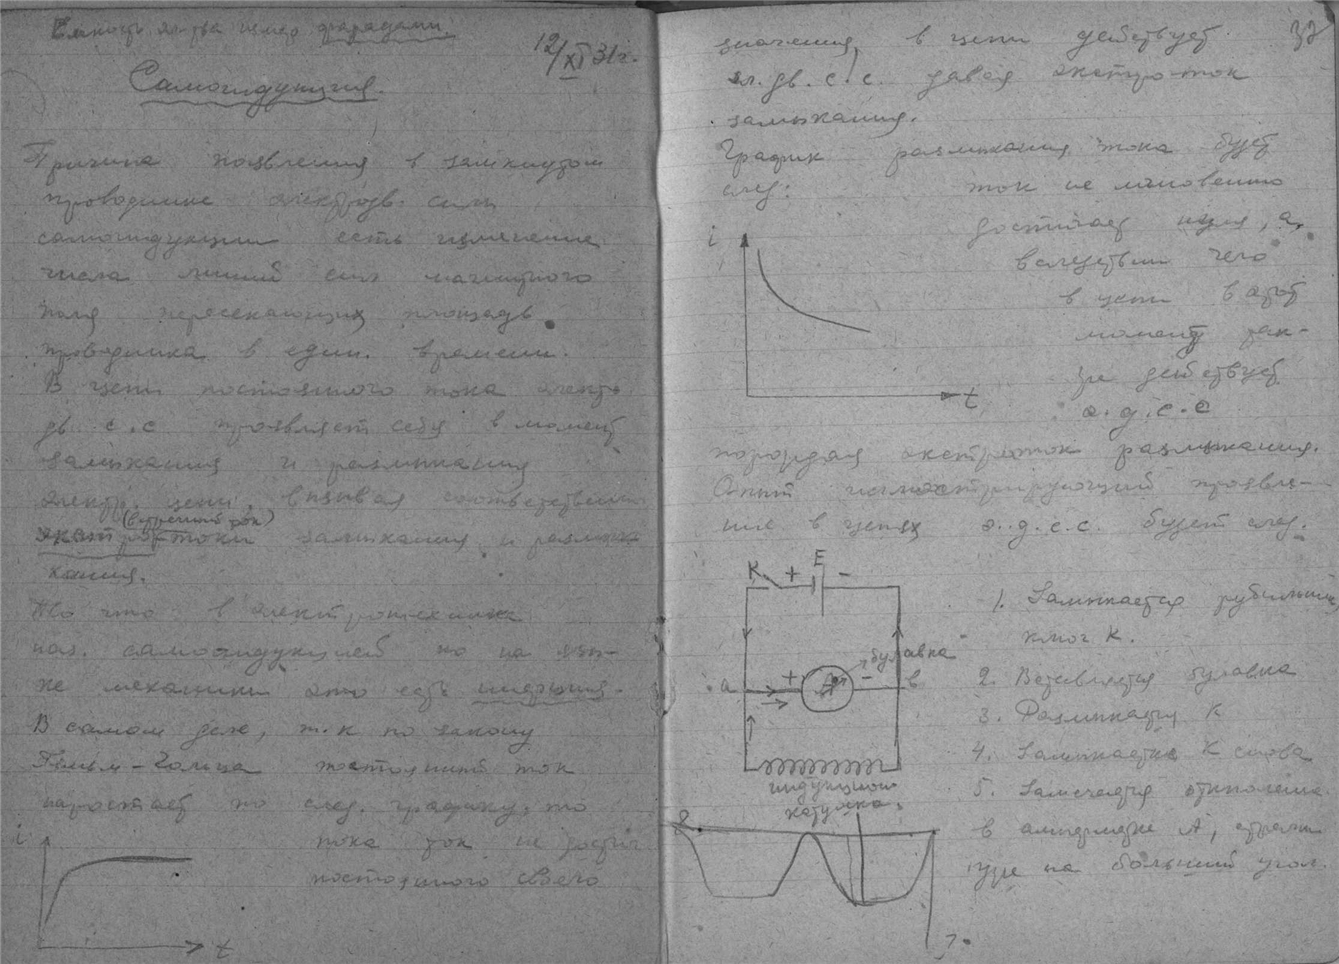 Емкость эл-тва измер. фарадами.
12/XI 31г.
Самоиндукция.
Причина появления в замкнутом
проводнике электродв. силы
самоиндукции есть изменение
числа линий сил магнитного
поля пересекающих площадь
проводника в един. времени.
В цепи постоянного тока электр
дв. с. с. проявляет себя в момент
замыкания и размыкания
электр. цепи, вызывая соответственно
(встречный ток)
экстротоки замыкания и размы-
кания.
То что в электротехнике
наз. самоиндукцией но на язы-
ке механики это есть инерция.
В самом деле, т.к по закону
Гельм-Гольца постоянный ток
наростает по след. графику, то
i
пока ток не достиг
постоянного своего
t
37
значения, в цепи действует
эл. дв. с. с. давая экстро-ток
замыкания.
График размыкания тока будет
след: ток не мгновенно
i
достигает нуля, а,
вследствии чего
в цепи в этот
момент так-
же действует
t
э. д. с. с
порождая экстроток размыкания.
Опыт иллюстрирующий проявле-
ние в цепях э. д. с. с. будет след.
К + E -
1. Замыкается рубильник
ключ К.
булавка
а + А - в
2. Вставляется булавка
3. Размыкается К
4. Замыкается К снова
индукцион
катушка.
5. Замечается отклонение
в амперметре А, стрелки
уже на больший угол.